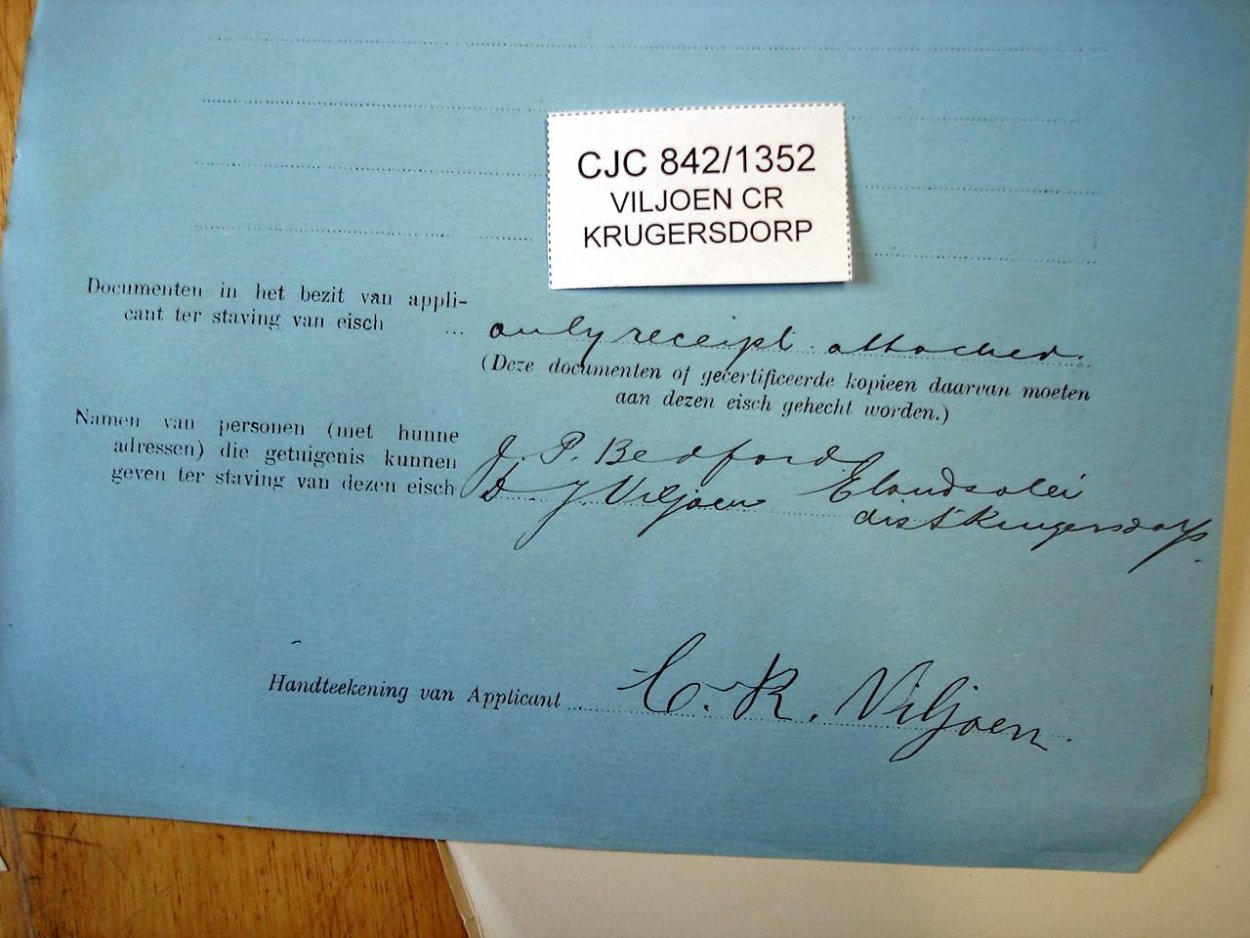 CJC 842/1352
VILJOEN CR
KRUGERSDORP
Documenten in het bezit van appli-
cant ter staving van eisch ... only receipt attached.
(Deze documenten of gecertificeerde kopieen daarvan moeten
aan dezen eisch gehecht worden.)
Namen van personen (met hunne
adressen) die getuigenis kunnen
geven ter staving van dezen eisch
J. P. Bedford
D J Viljoen Elandsvlei
dist Krugersdorp.
Handteekening van Applicant ... C. R. Viljoen.